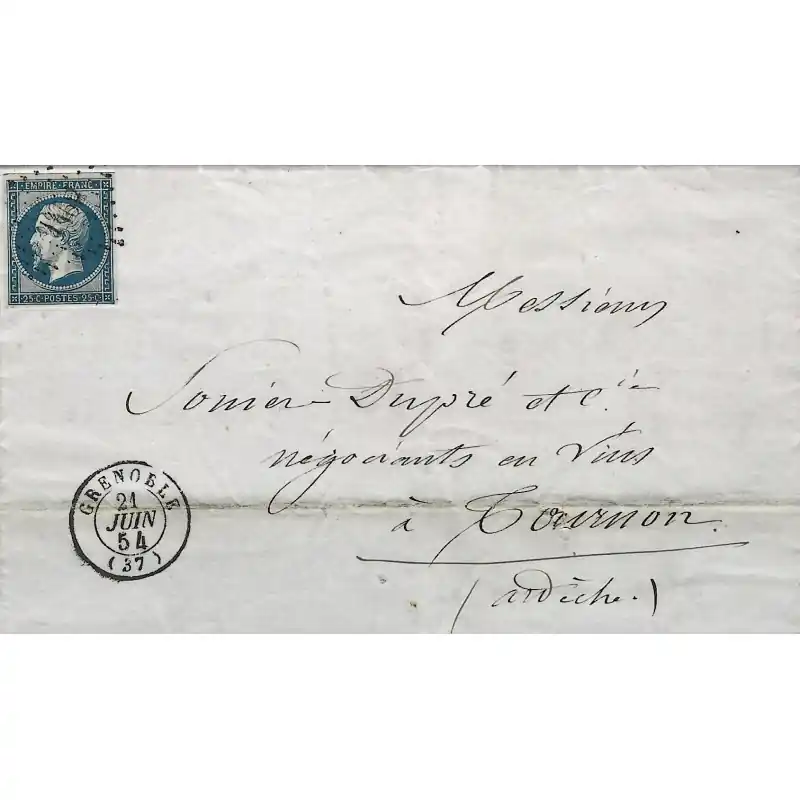 EMPIRE·FRANC·
25·C·POSTES·25·C·
Messieurs
Sonier Dupré et Cie
négociants en Vins
à Tournon.
(ardèche.)
GRENOBLE
21
JUIN
54
(37)